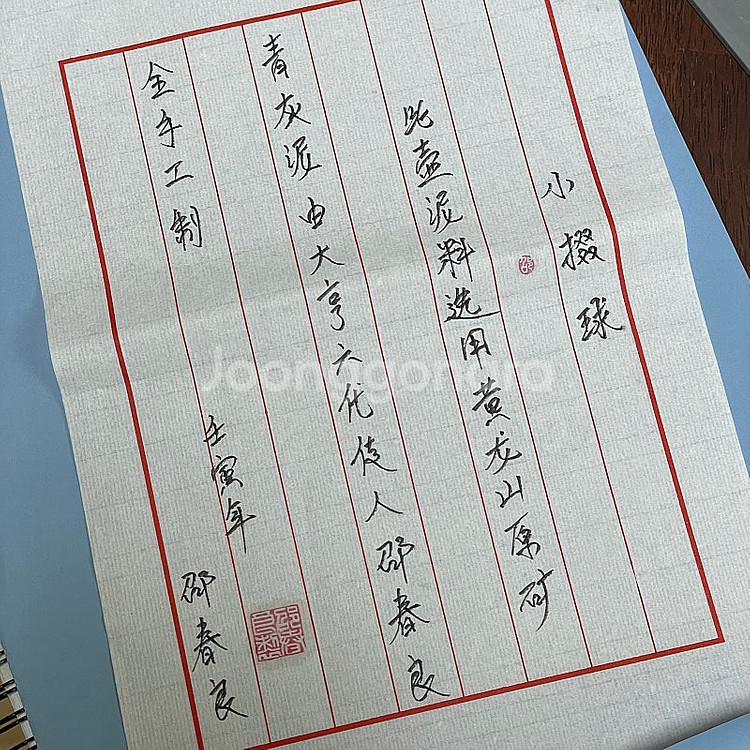 小掇球
此壶泥料选用黄龙山原矿
青灰泥由大亨六代传人邵春良
全手工制
壬寅年
邵春良
Joonggonara